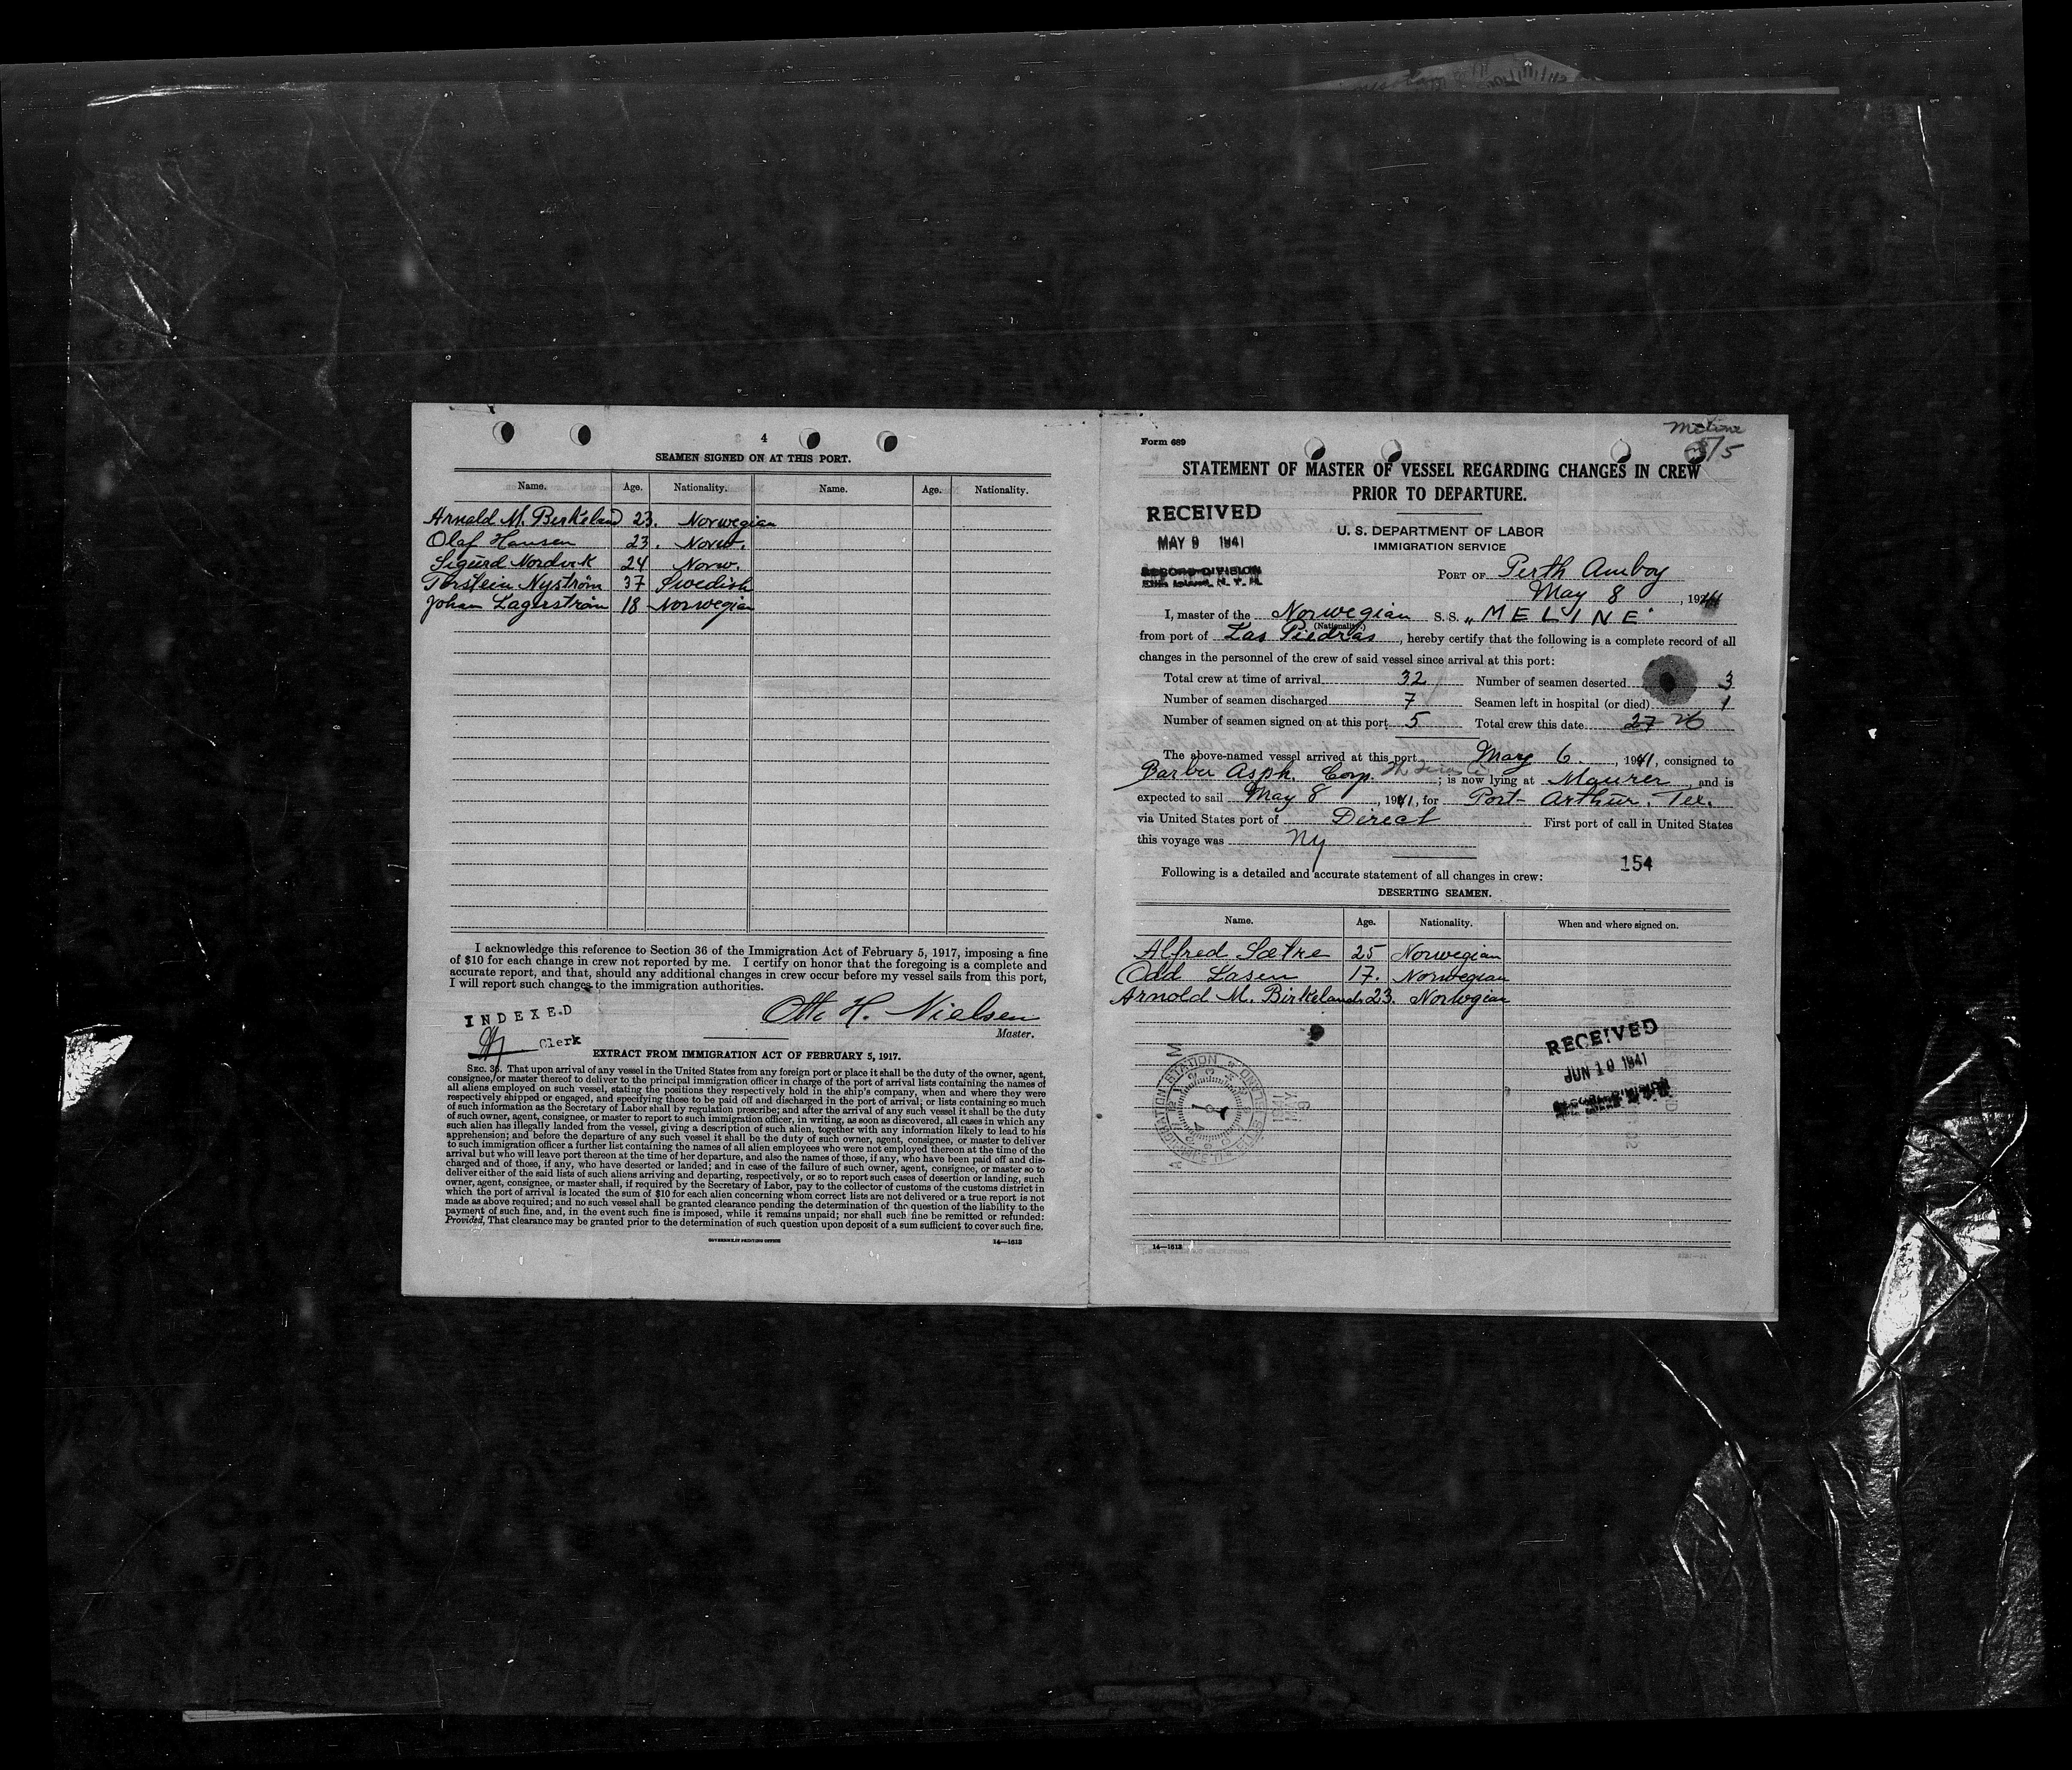 4
SEAMEN SIGNED ON AT THIS PORT.
Name. Age. Nationality. Name. Age. Nationality.
Arnold M. Birkeland 23. Norwegian
Olaf Hansen 23. Norw.
Sigurd Nordvik 24 Norw.
Torstein Nyström 37 Swedish
Johan Lagerström 18 Norwegian
I acknowledge this reference to Section 36 of the Immigration Act of February 5, 1917, imposing a fine
of $10 for each change in crew not reported by me. I certify on honor that the foregoing is a complete and
accurate report, and that, should any additional changes in crew occur before my vessel sails from this port,
I will report such changes to the immigration authorities.
INDEXED
Clerk
Otto H. Nielsen
Master.
EXTRACT FROM IMMIGRATION ACT OF FEBRUARY 5, 1917.
SEC. 36. That upon arrival of any vessel in the United States from any foreign port or place it shall be the duty of the owner, agent,
consignee, or master thereof to deliver to the principal immigration officer in charge of the port of arrival lists containing the names of
all aliens employed on such vessel, stating the positions they respectively hold in the ship's company, when and where they were
respectively shipped or engaged, and specifying those to be paid off and discharged in the port of arrival; or lists containing so much
of such information as the Secretary of Labor shall by regulation prescribe; and after the arrival of any such vessel it shall be the duty
of such owner, agent, consignee, or master to report to such immigration officer, in writing, as soon as discovered, all cases in which any
such alien has illegally landed from the vessel, giving a description of such alien, together with any information likely to lead to his
apprehension; and before the departure of any such vessel it shall be the duty of such owner, agent, consignee, or master to deliver
to such immigration officer a further list containing the names of all alien employees who were not employed thereon at the time of the
arrival but who will leave port thereon at the time of her departure, and also the names of those, if any, who have been paid off and dis-
charged and of those, if any, who have deserted or landed; and in case of the failure of such owner, agent, consignee, or master so to
deliver either of the said lists of such aliens arriving and departing, respectively, or so to report such cases of desertion or landing, such
owner, agent, consignee, or master shall, if required by the Secretary of Labor, pay to the collector of customs of the customs district in
which the port of arrival is located the sum of $10 for each alien concerning whom correct lists are not delivered or a true report is not
made as above required; and no such vessel shall be granted clearance pending the determination of the question of the liability to the
payment of such fine, and, in the event such fine is imposed, while it remains unpaid; nor shall such fine be remitted or refunded:
Provided, That clearance may be granted prior to the determination of such question upon deposit of a sum sufficient to cover such fine.
GOVERNMENT PRINTING OFFICE 14—1613
Form 689
5/5
STATEMENT OF MASTER OF VESSEL REGARDING CHANGES IN CREW
PRIOR TO DEPARTURE.
RECEIVED
MAY 9 1941
SECOND DIVISION
Ellis Island, N. Y. H.
U. S. DEPARTMENT OF LABOR
IMMIGRATION SERVICE
PORT OF Perth Amboy
May 8, 1941
I, master of the Norwegian S. S. „MELINE"
(Nationality.)
from port of Las Piedras, hereby certify that the following is a complete record of all
changes in the personnel of the crew of said vessel since arrival at this port:
Total crew at time of arrival 32 Number of seamen deserted 3
Number of seamen discharged 7 Seamen left in hospital (or died) 1
Number of seamen signed on at this port 5 Total crew this date 27 26
The above-named vessel arrived at this port May 6., 1941, consigned to
Barber Asph. Corp. ; is now lying at Maurer, and is
expected to sail May 8, 1941, for Port Arthur. Tex.
via United States port of Direct First port of call in United States
this voyage was NY
154
Following is a detailed and accurate statement of all changes in crew:
DESERTING SEAMEN.
Name. Age. Nationality. When and where signed on.
Alfred Sætre 25 Norwegian
Odd Lasen 17. Norwegian
Arnold M. Birkeland 23. Norwgian
RECEIVED
JUN 10 1941
14—1613